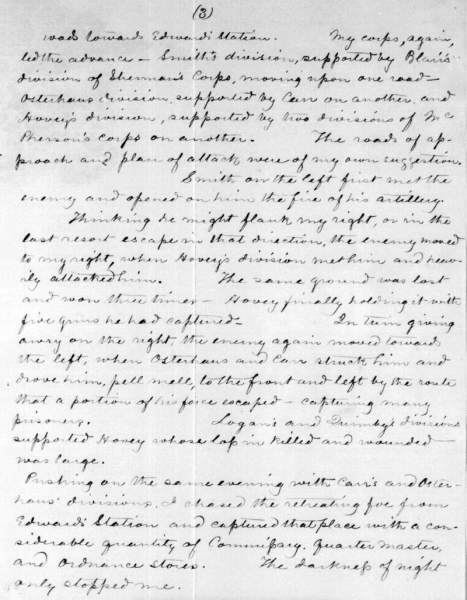 (3)
roads towards Edwards Station. My corps, again,
led the advance – Smith's division, supported by Blair's
division of Sherman's Corps, moving upon one road –
Osterhaus division, supported by Carr on another, and
Hovey's division, supported by two divisions of Mc
Pherson's corps on another. The roads of ap-
proach and plan of attack were of my own suggestion.
Smith on the left first met the
enemy and opened on him the fire of his artillery.
Thinking he might flank my right, or in the
last resort escape in that direction, the enemy moved
to my right, when Hovey's division met him and heav-
ily attacked him. The same ground was lost
and won three times – Hovey finally holding it with
five guns he had captured – In turn giving
away on the right the enemy again moved toward
the left, when Osterhaus and Carr struck him and
drove him, pell mell, to the front and left by the route
that a portion of his force escaped – capturing many
prisoners. Logan's and Quimby's divisions
supported Hovey whose loss in killed and wounded
was large.
Pushing on the same evening with Carr's and Oster-
haus' divisions, I chased the retreating foe from
Edwards Station and captured that place with a con-
siderable quantity of Commissary, Quarter Master,
and Ordnance stores. The darkness of night
only stopped me.